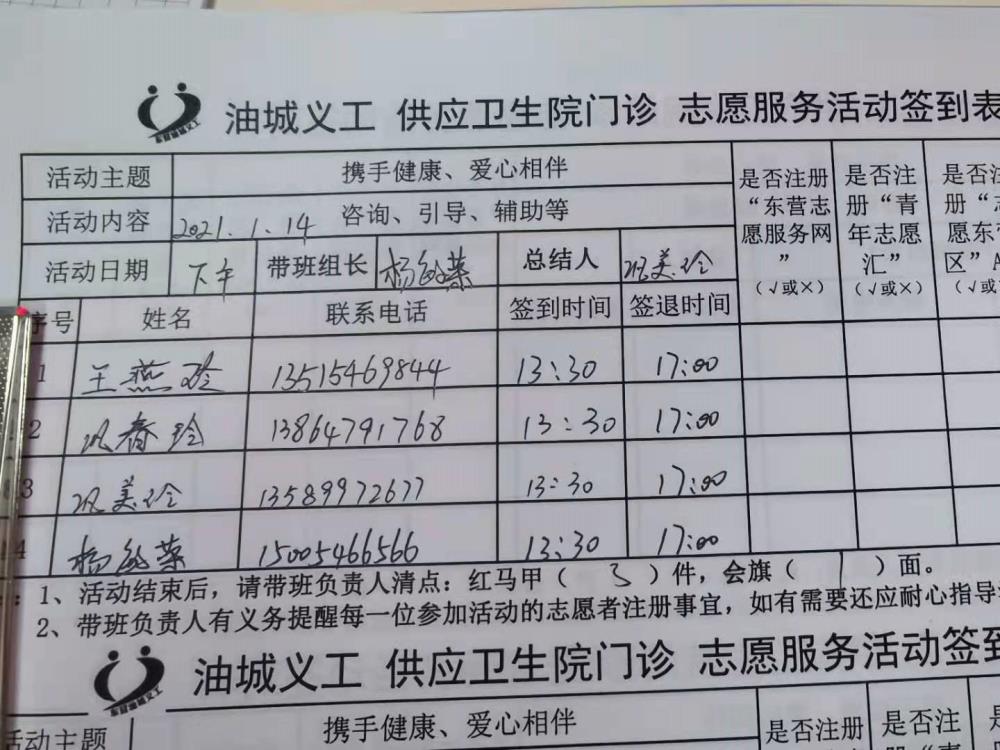 油城义工 供应卫生院门诊 志愿服务活动签到表
活动主题 携手健康、爱心相伴 是否注册“东营志愿服务网”(√或×) 是否注册“青年志愿汇”(√或×) 是否注
册“志
愿东营
区”A
(√或
活动内容 咨询、引导、辅助等
活动日期 2021.1.14 下午 带班组长 杨 荣 总结人 巩美玲
序号 姓名 联系电话 签到时间 签退时间
1 王燕玲 13515469844 13:30 17:00
2 巩春玲 13864791768 13:30 17:00
3 巩美玲 13589972677 13:30 17:00
4 杨 荣 15005466566 13:30 17:00
:1、活动结束后，请带班负责人清点：红马甲（ 3 ）件，会旗（ 1 ）面。
2、带班负责人有义务提醒每一位参加活动的志愿者注册事宜，如有需要还应耐心指导
油城义工 供应卫生院门诊 志愿服务活动签到
活动主题 携手健康、爱心相伴 是否注册 是否注 是